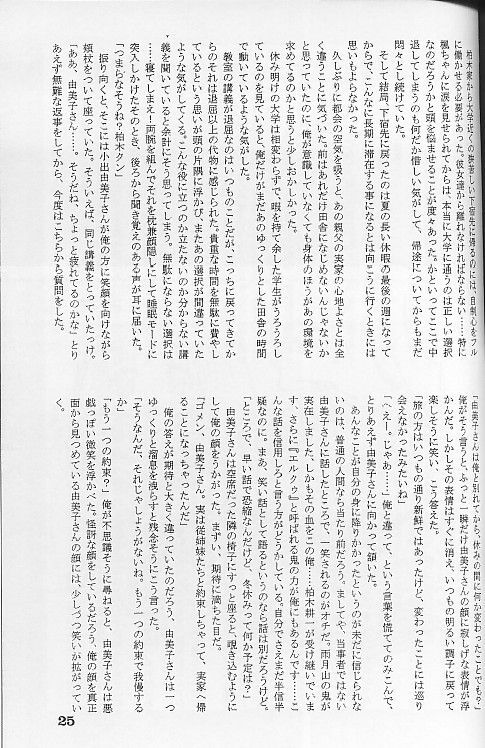 柏木家から大学近くの狭苦しい下宿先に帰るのには、自制心をフル
に働かせる必要があった。彼女達から離れなければならない……特に
楓ちゃんに涙を見せられてからは、本当に大学に通うのは正しい選択
なのだろうかと頭を悩ませることが度々あった。かといってここで中
退してしまうのも何だか惜しい気がして、帰途についてからもまだ
悶々とし続けていた。
そして結局、下宿先に戻ったのは夏の長い休暇の最後の週になって
からで、こんなに長期に滞在する事になるとは向こうに行くときには
思いもよらなかった。
久しぶりに都会の空気を吸うと、あの親父の実家の心地よさとは全
く違うことに気づいた。前はあれだけ田舎になじめないんじゃないか
と思っていたのに、俺が意識していなくても身体のほうがあの環境を
求めてるのかと思うと少しおかしかった。
休み明けの大学は相変わらずで、暇を持て余した学生がうろうろし
ているのを見ていると、俺だけがまだあのゆっくりとした田舎の時間
で動いているような気がした。
教室の講義が退屈なのはいつものことだが、こっちに戻ってきてか
らのそれは退屈以上の代物に感じられた。貴重な時間を無駄に費やし
ているという思いが頭の片隅に浮かび、またあの選択が間違っていた
ような気がしてくる。こんな役に立つのか立たないのか分からない講
義を聞いていると余計にそう思ってしまう。無駄にならない選択は
……寝てしまえ！両腕を組んでそれを枕兼顔隠しにして睡眠モードに
突入しかけたそのとき、後ろから聞き覚えのある声が耳に届いた。
「つまらなそうね？柏木クン」
振り向くと、そこには小出由美子さんが俺の方に笑顔を向けながら
頬杖をついて座っていた。そういえば、同じ講義をとっていたっけ。
「ああ、由美子さん……。そうだね、ちょっと疲れてるのかな」とり
あえず無難な返事をしてから、今度はこちらから質問をした。
「由美子さんは俺と別れてから、休みの間に何か変わったことでも？」
俺がそう言うと、ふっと一瞬だけ由美子さんの顔に寂しげな表情が浮
かんだ。しかしその表情はすぐに消え、いつもの明るい調子に戻って
楽しそうに笑い、こう答えた。
「旅の方はいつもの通り新鮮ではあったけど、変わったことには巡り
会えなかったみたいね」
「へぇー。じゃあ……」俺と違って、という言葉を慌ててのみこんで、
とりあえず由美子さんに向かって頷いた。
あんなことが自分の身に降りかかったというのが未だに信じられな
いのは、普通の人間なら当たり前だろう。ましてや、当事者ではない
由美子さんに話したところで、一笑されるのがオチだ。「雨月山の鬼が
実在しました。しかもその血をこの俺……柏木耕一が受け継いでいま
す、さらに『エルクゥ』と呼ばれる鬼の力が俺にもあるんです……」
んな話を信用しろと言う方がどうかしている。自分でさえまだ半信半
疑なのに。まあ、笑い話として語るというのなら話は別だろうけど。
「ところで、早い話で恐縮なんだけど、冬休みって何か予定は？」
由美子さんは空席だった隣の椅子にすっと座ると、覗き込むように
して俺の顔をうかがった。まずい、期待に満ちた目だ。
「ゴメン、由美子さん。実は従姉妹たちと約束しちゃって、実家へ帰
ることになっちゃって」
俺の答えが期待と大きく違っていたのだろう、由美子さんは一つ
ゆっくりと溜息を洩らすと残念そうにこう言った。
「そうなんだ、それじゃしょうがないね。もう一つの約束で我慢する
か」
「もう一つの約束？」俺が不思議そうに尋ねると、由美子さんは悪
戯っぽい微笑を浮かべた。怪訝な顔をしているだろう、俺の顔を真正
面から見つめている由美子さんの顔には、少しづつ笑いが拡がってい
く。
25